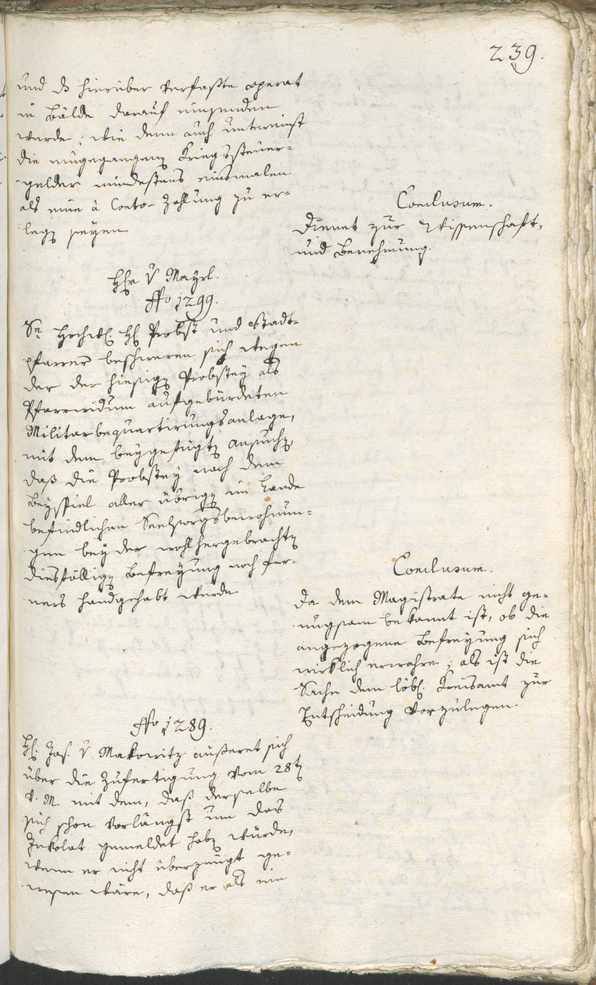 239.
und ds hierüber verfaßte operat
in Bälde darauf einsenden
werde; wie denn auch untereinst
die eingegangenen Kriegssteuer-
gelder mindestens einsmalen
als eine à Conto Zahlung zu er-
legen seyen
Conclusum.
Dienet zur Wissenschaft,
und Benehmung.
Hr v Mayrl.
No 1299.
Se Hochw. H. Probst und Stadt-
pfarrer beschweren sich wegen
der der hiesigen Probstey als
Pfarrwidum aufgebürdeten
Militarbequartirungsanlage,
mit dem beygefügten Ansuchen,
daß die Probstey nach dem
Beyspiel aller übrigen im Lande
befindlichen Seelsorgsbewohnun-
gen bey der wohlhergebrachten
diesfälligen Befreyung noch fer-
ners handgehabt werde
Conclusum.
Da dem Magistrate nicht ge-
nugsam bekannt ist, ob die
angezogene Befreyung sich
wirklich erwahre; als ist die
Sache dem löbl. Kreisamt zur
Entscheidung vorzulegen.
No 1289.
H. Jos. v Makowitz äußeret sich
über die Zufertigung vom 28t
v. M. mit dem, daß derselbe
sich schon vorlängst um das
Inkolat gemeldet haben würde,
wenn er nicht überzeugt ge-
wesen wäre, daß er als ein